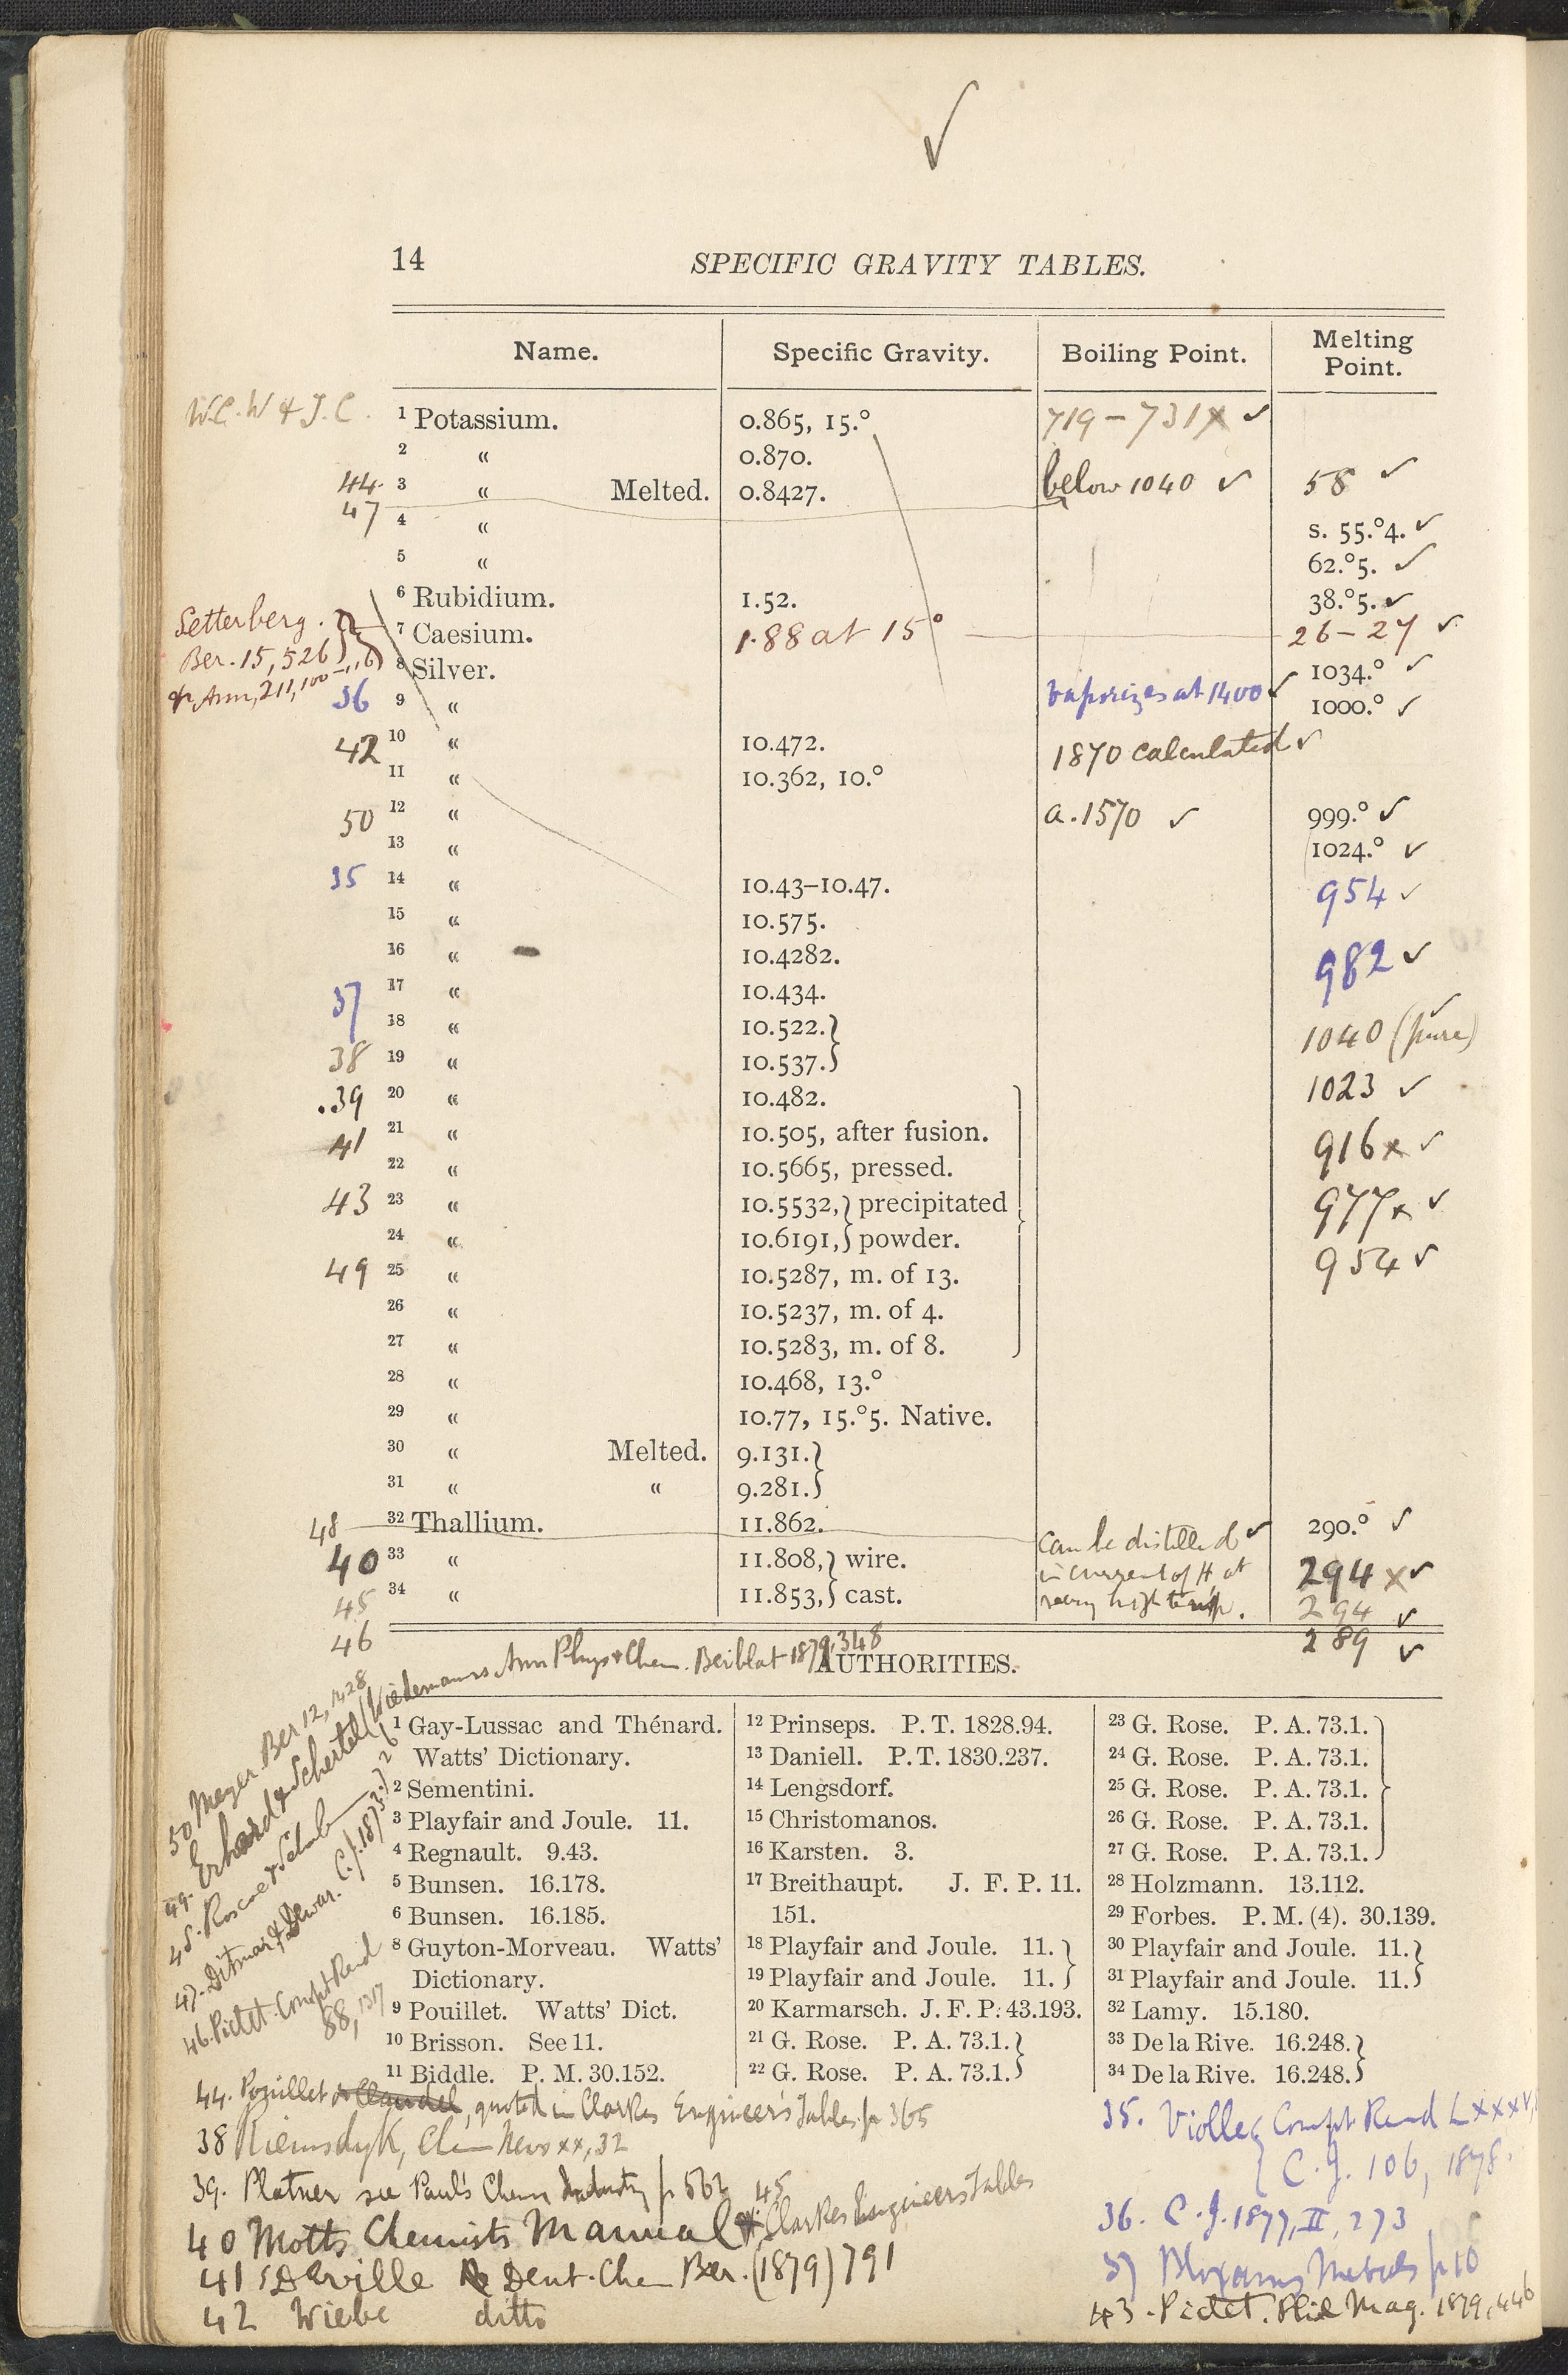 14 SPECIFIC GRAVITY TABLES.
Name. Specific Gravity. Boiling Point. Melting Point.
W.C. W & J. C. 1 Potassium. 0.865, 15.° 719–731x ✓
2 " 0.870.
44. 3 " Melted. 0.8427. below 1040 ✓ 58 ✓
47 4 " s. 55.°4. ✓
5 " 62.°5. ✓
6 Rubidium. 1.52. 38.°5. ✓
Setterberg. 7 Caesium. 1.88 at 15° 26–27 ✓
Ber. 15, 526 8 Silver. 1034.° ✓
& Ann, 211, 100–116
36 9 " vaporizes at 1400 ✓ 1000.° ✓
42 10 " 10.472. 1870 calculated ✓
11 " 10.362, 10.°
50 12 " a. 1570 ✓ 999.° ✓
13 " 1024.° ✓
35 14 " 10.43–10.47. 954 ✓
15 " 10.575.
16 " 10.4282. 982 ✓
37 17 " 10.434.
18 " 10.522.} 1040 (pure) ✓
38 19 " 10.537.}
39 20 " 10.482. 1023 ✓
41 21 " 10.505, after fusion. 916x ✓
22 " 10.5665, pressed.
43 23 " 10.5532,} precipitated 977x ✓
24 " 10.6191,} powder.
49 25 " 10.5287, m. of 13. 954 ✓
26 " 10.5237, m. of 4.
27 " 10.5283, m. of 8.
28 " 10.468, 13.°
29 " 10.77, 15.°5. Native.
30 " Melted. 9.131.}
31 " " 9.281.}
48 32 Thallium. 11.862. can be distilled ✓ 290.° ✓
40 33 " 11.808,} wire. in current of H at 294 x✓
45 34 " 11.853,} cast. very high temp. 294 ✓
46 289 ✓
AUTHORITIES.
1 Gay-Lussac and Thénard.
Watts' Dictionary.
2 Sementini.
3 Playfair and Joule. 11.
4 Regnault. 9.43.
5 Bunsen. 16.178.
6 Bunsen. 16.185.
8 Guyton-Morveau. Watts'
Dictionary.
9 Pouillet. Watts' Dict.
10 Brisson. See 11.
11 Biddle. P. M. 30.152.
12 Prinseps. P. T. 1828.94.
13 Daniell. P. T. 1830.237.
14 Lengsdorf.
15 Christomanos.
16 Karsten. 3.
17 Breithaupt. J. F. P. 11.
151.
18 Playfair and Joule. 11.}
19 Playfair and Joule. 11.}
20 Karmarsch. J. F. P. 43.193.
21 G. Rose. P. A. 73.1.}
22 G. Rose. P. A. 73.1.}
23 G. Rose. P. A. 73.1.
24 G. Rose. P. A. 73.1.
25 G. Rose. P. A. 73.1.
26 G. Rose. P. A. 73.1.
27 G. Rose. P. A. 73.1.
28 Holzmann. 13.112.
29 Forbes. P. M. (4). 30.139.
30 Playfair and Joule. 11.}
31 Playfair and Joule. 11.}
32 Lamy. 15.180.
33 De la Rive. 16.248.}
34 De la Rive. 16.248.}
50 Meyer Ber 12, 1428
49. Erhard & Schertel (Wiedemanns Ann Phys & Chem. Beiblat 1879, 348
48. Roscoe & Schuster
47. Ditmar & Dewar. C. J. 1873.
46. Pictet. Compt Rend
88, 1317
44. Pouillet, quoted in Clarkes Engineer's Tables p 365
38 Riemsdyk, Chem News xx, 32
39. Platner see Paul's Chem Industry p 562
45 Clarkes Engineers Tables
40 Motts Chemists Manual
41 Deville Deut. Chem Ber. (1879) 791
42 Wiebe ditto
35. Violle { Compt Rend LXXXV,
C. J. 106, 1878.
36. C. J. 1877, II, 273
37 Bloxams Metals p 10
43. Pictet. Phil Mag. 1879, 446